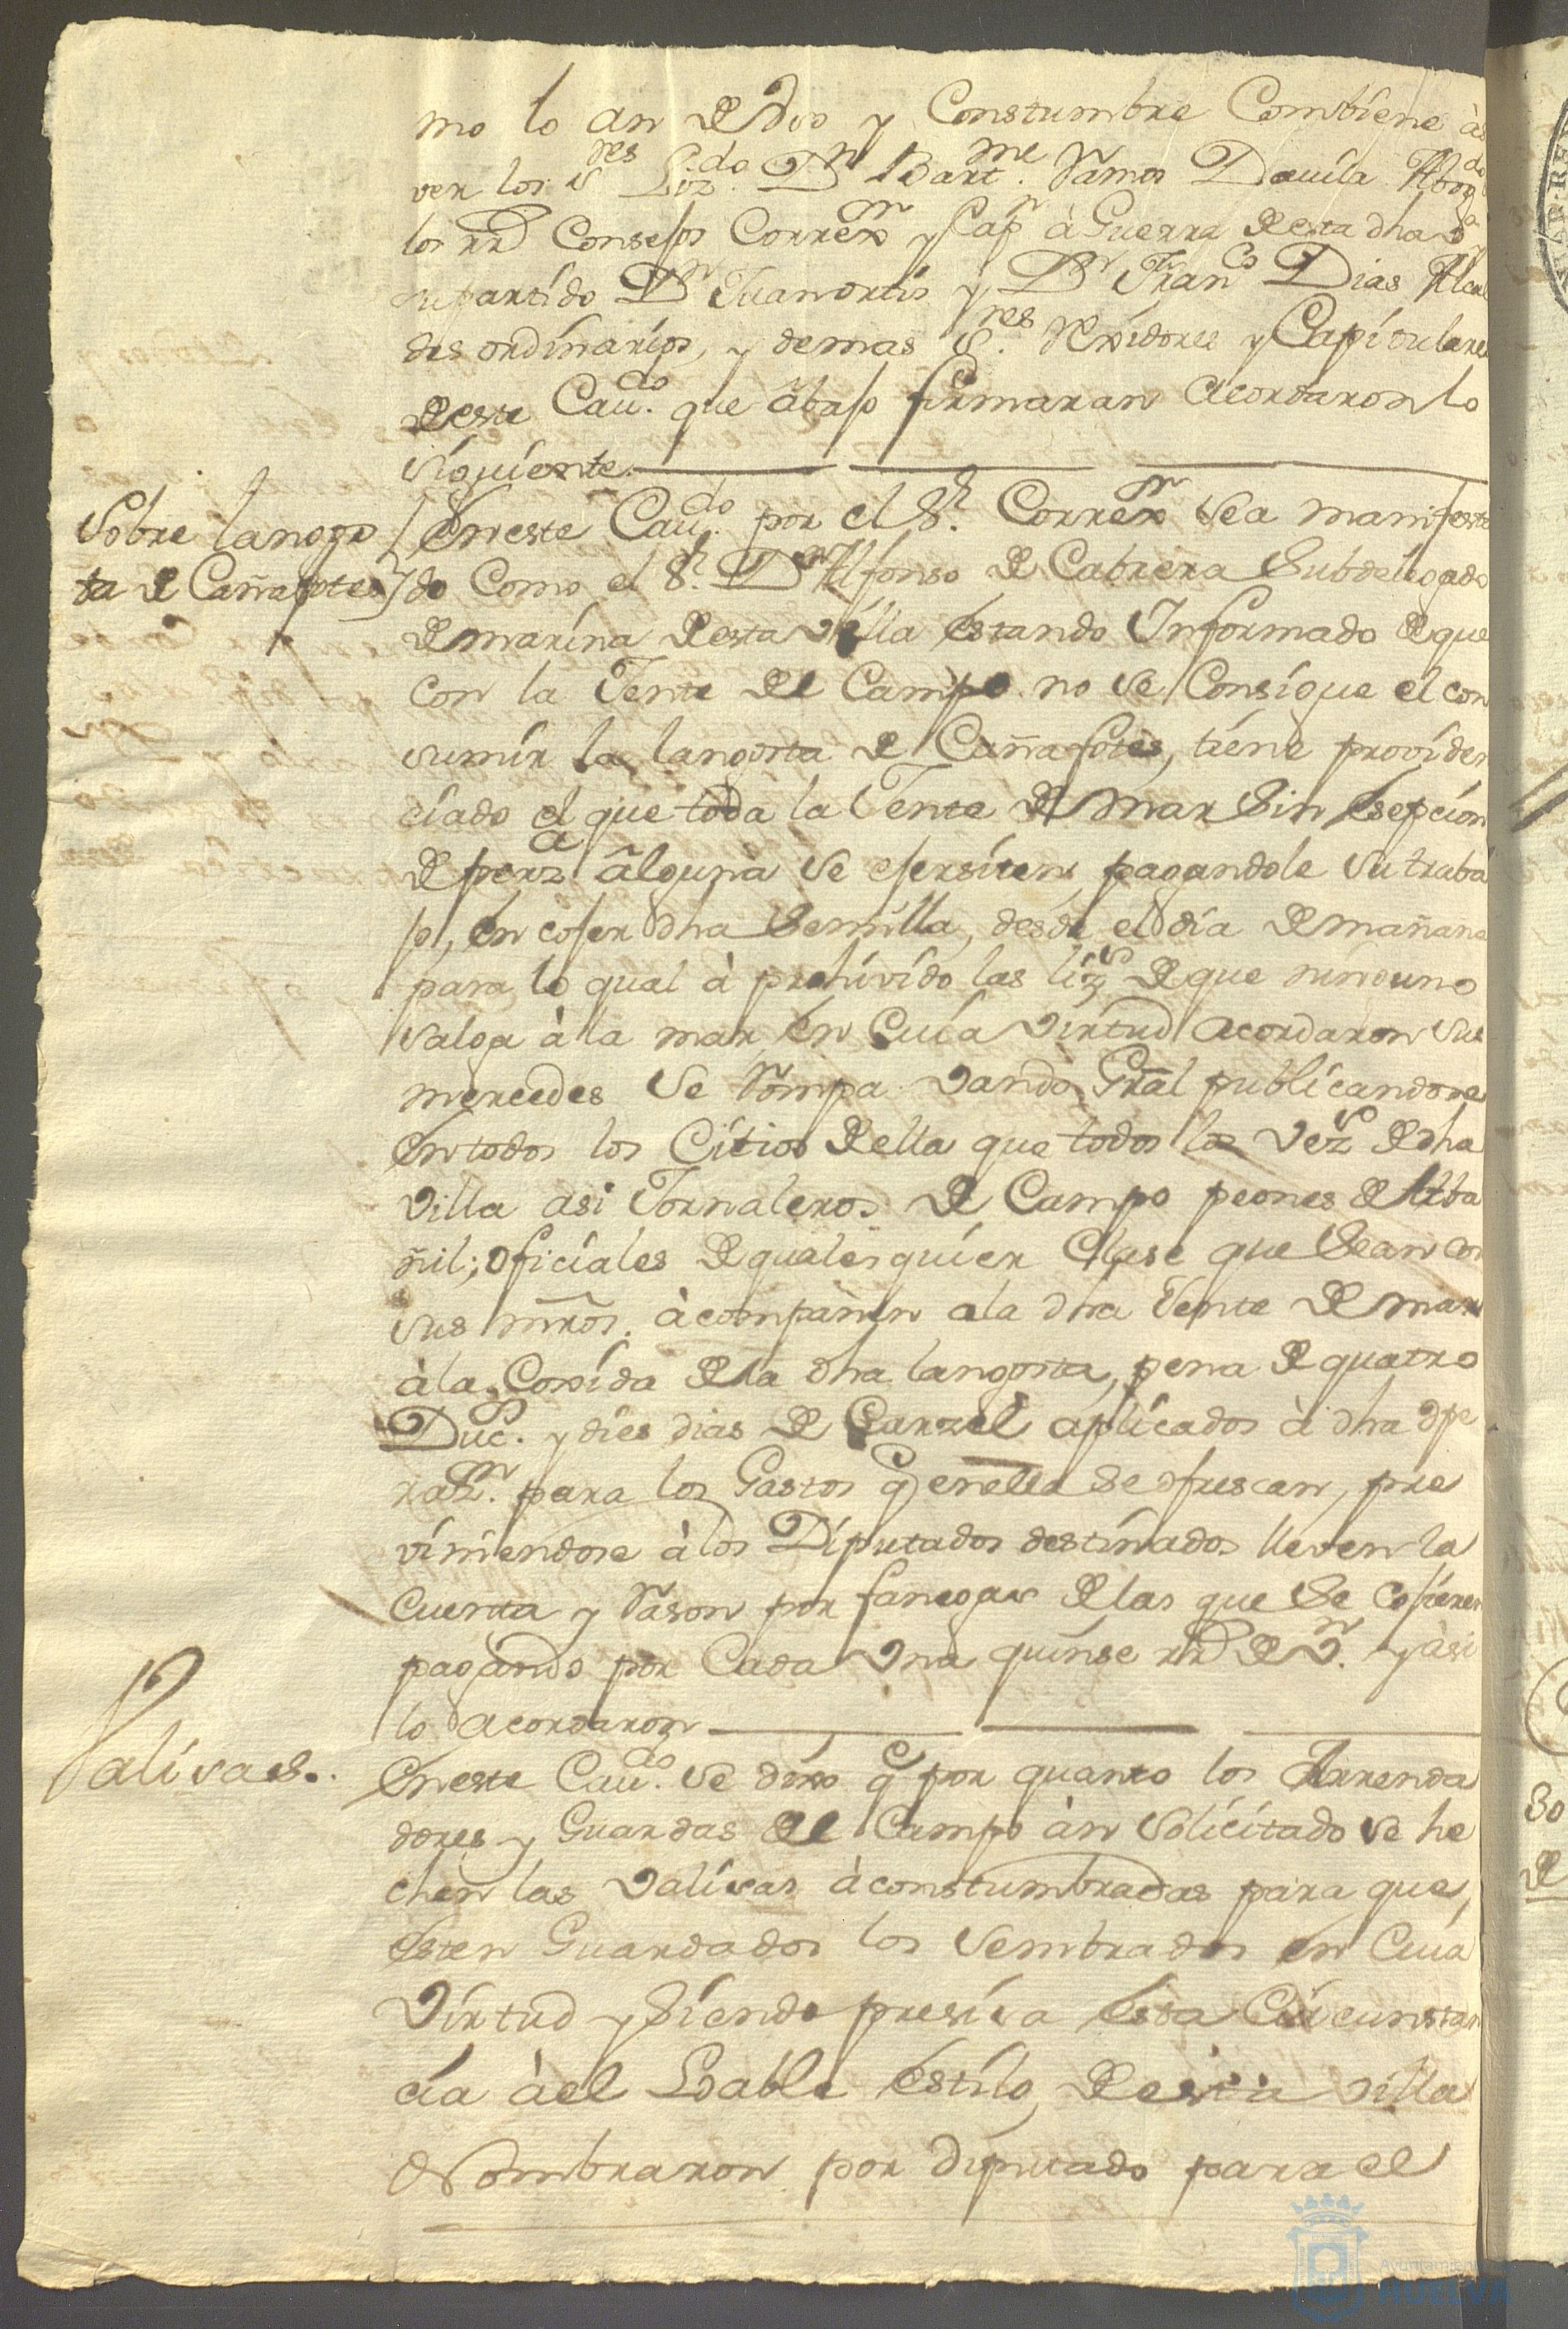 mo lo an de Vso y Constumbre Combiene à
ver los S.res Liz.do Dn Bart.me Ramos Dauila Abog.do
los RR.s Consejos Correx.or y Cap.n à Guerra de esta dha V.a
su partido Dn Juan ortis y Dn Fran.co Dias Alcal
des ordinarios, y demas S.res Rexidores y Capitulares
de este Cau.do que abajo firmaran Acordaron lo
siguiente
Sobre langos
ta de Cañafotes
En este Cau.do por el S.r Correx.or se a manifesta
do Como el S.r Dn Alfonso de Cabrera Subdelegado
de marina de esta Villa Estando Informado de que
con la Jente del Campo no se Consigue el con
sumir la langosta de Cañafotes, tiene providen
ciado el que toda la Jente de Mar Sin Esepcion
de perz.a alguna se ejersiten pagandole su traba
jo, En cojer dha Semilla, desde el dia de mañana
para lo qual à prohivido las liz.s de que ninguno
salga à la mar, En Cuia Virtud Acordaron sus
mercedes se Rompa Vando Gral publicandose
En todos los Citios de ella que todos los Vez.s de dha
Villa asi Jornaleros de Campo peones de Alba
ñil; oficiales de qualesquier Clase que Sean con
sus mros. àcompañen a la dha Jente de mar
à la Coxida de la dha langosta, pena de quatro
Duc.s y dies dias de Carzel aplicados à dha ope
raz.n para los Gastos q en ella Se ofrescan, pre
viniendose à los Diputados destinados lleven la
Cuenta y Rason por fanegas de las que Se Cojieren
pagando por Cada Vna quinse rr.s de V.n y asi
lo acordaron
Valisas.
En este Cau.do se dixo q.e por quanto los Arrenda
dores y Guardas del Campo àn Solicitado se he
chen las Valisas àconstumbradas para que,
Esten Guardados los Sembrados En Cuia
Virtud y Siendo presisa Esta Circunstan
cia à el Loable Estilo de esta Villa
Nombraron por diputado para el
Ayuntamiento
HUELVA